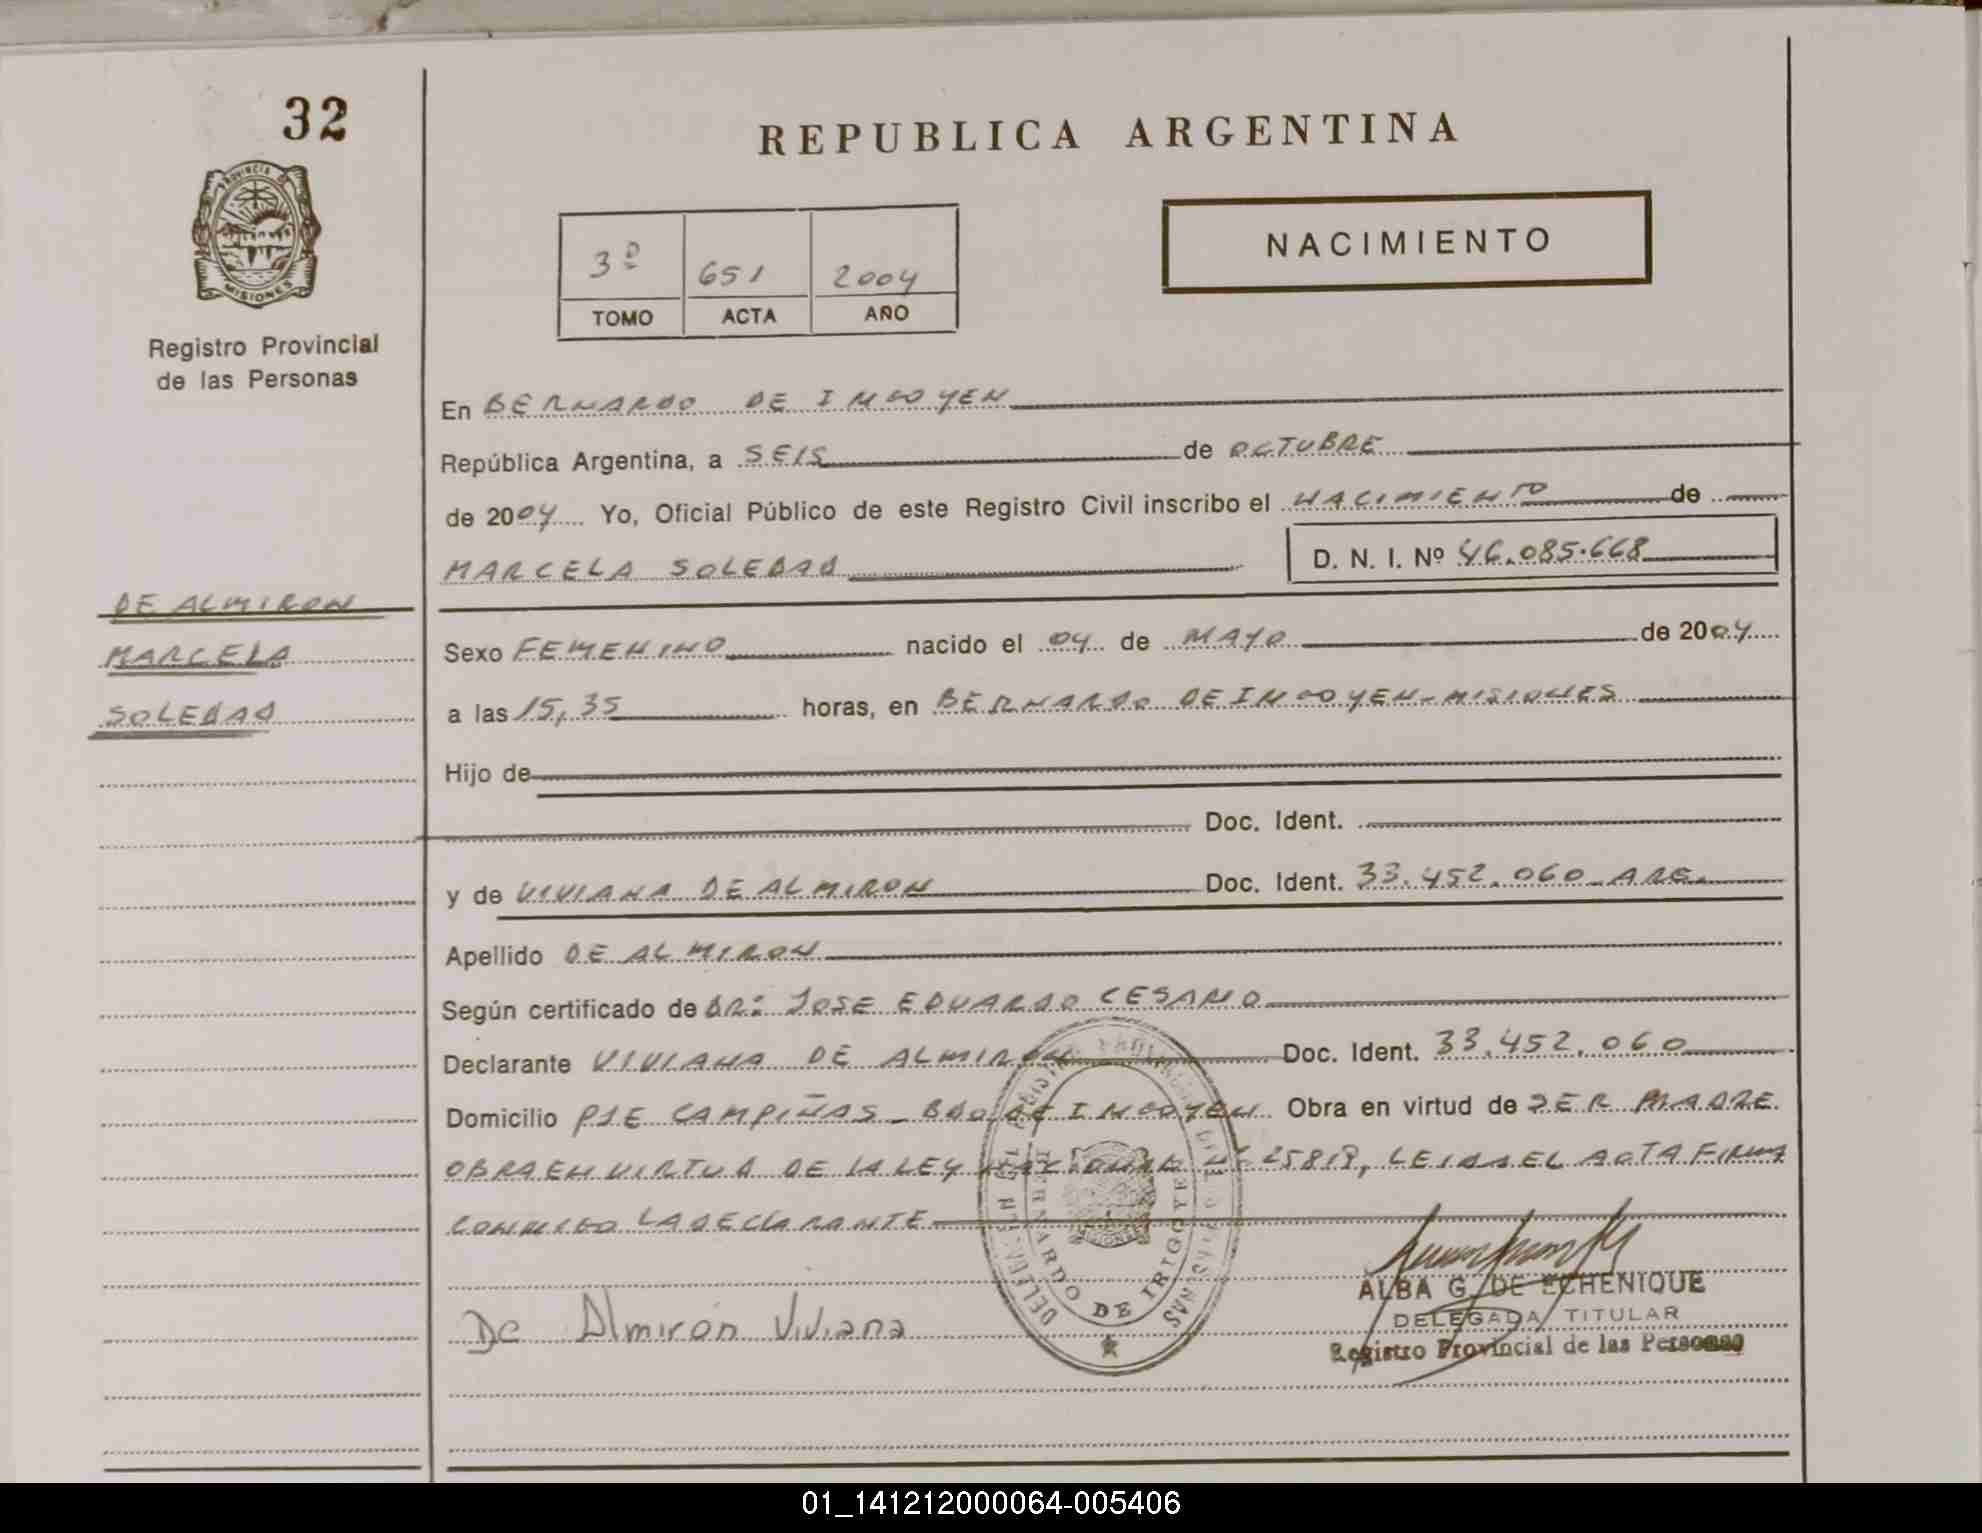 32
REPUBLICA ARGENTINA
PROVINCIA DE
MISIONES
Registro Provincial
de las Personas
NACIMIENTO
3º 651 2004
TOMO ACTA AÑO
En BERNARDO DE IRIGOYEN
República Argentina, a SEIS de OCTUBRE
de 2004 Yo, Oficial Público de este Registro Civil inscribo el NACIMIENTO de
MARCELA SOLEDAD D. N. I. Nº 46.085.668
DE ALMIRON
MARCELA
SOLEDAD
Sexo FEMENINO nacido el 04 de MAYO de 2004
a las 15,35 horas, en BERNARDO DE IRIGOYEN-MISIONES
Hijo de
Doc. Ident.
y de VIVIANA DE ALMIRON Doc. Ident. 33.452.060 ARG.
Apellido DE ALMIRON
Según certificado de DR: JOSE EDUARDO CESARIO
Declarante VIVIANA DE ALMIRON Doc. Ident. 33.452.060
Domicilio PJE CAMPIÑAS - BDO. DE IRIGOYEN Obra en virtud de SER MADRE
OBRA EN VIRTUD DE LA LEY NACIONAL Nº 25818, LEIDA EL ACTA FIRMA
CONMIGO LA DECLARANTE
De Almirón Viviana
BERNARDO DE IRIGOYEN
ALBA G. DE ECHENIQUE
DELEGADA TITULAR
Registro Provincial de las Personas
01_141212000064-005406